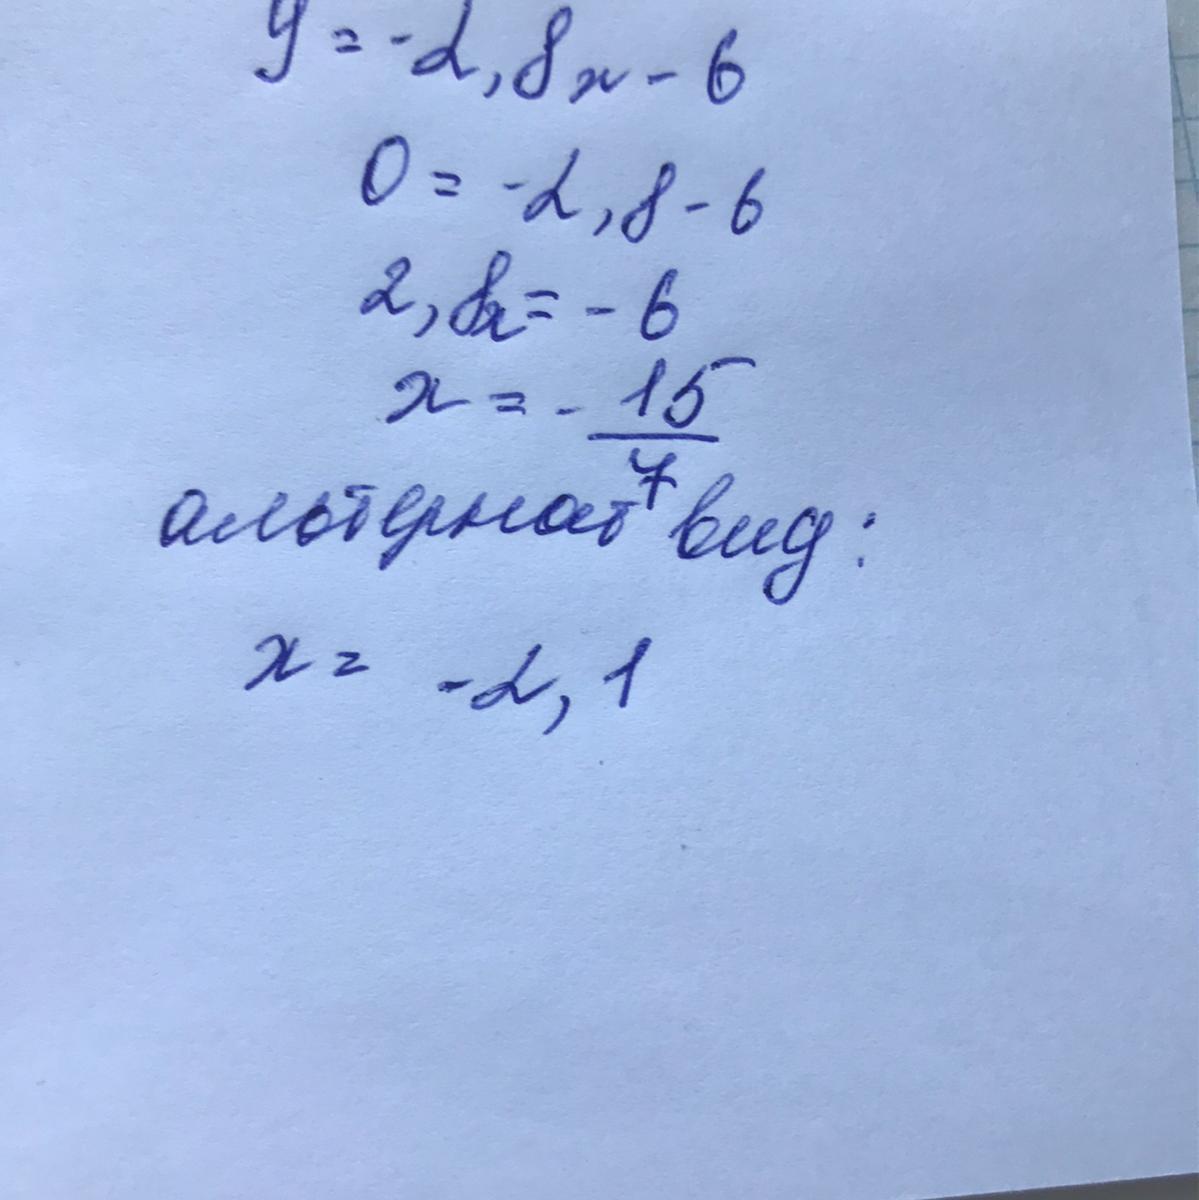 y = -2,8x - 6
0 = -2,8 - 6
2,8x = - 6
x = - 15/7
альтернат вид:
x = -2,1